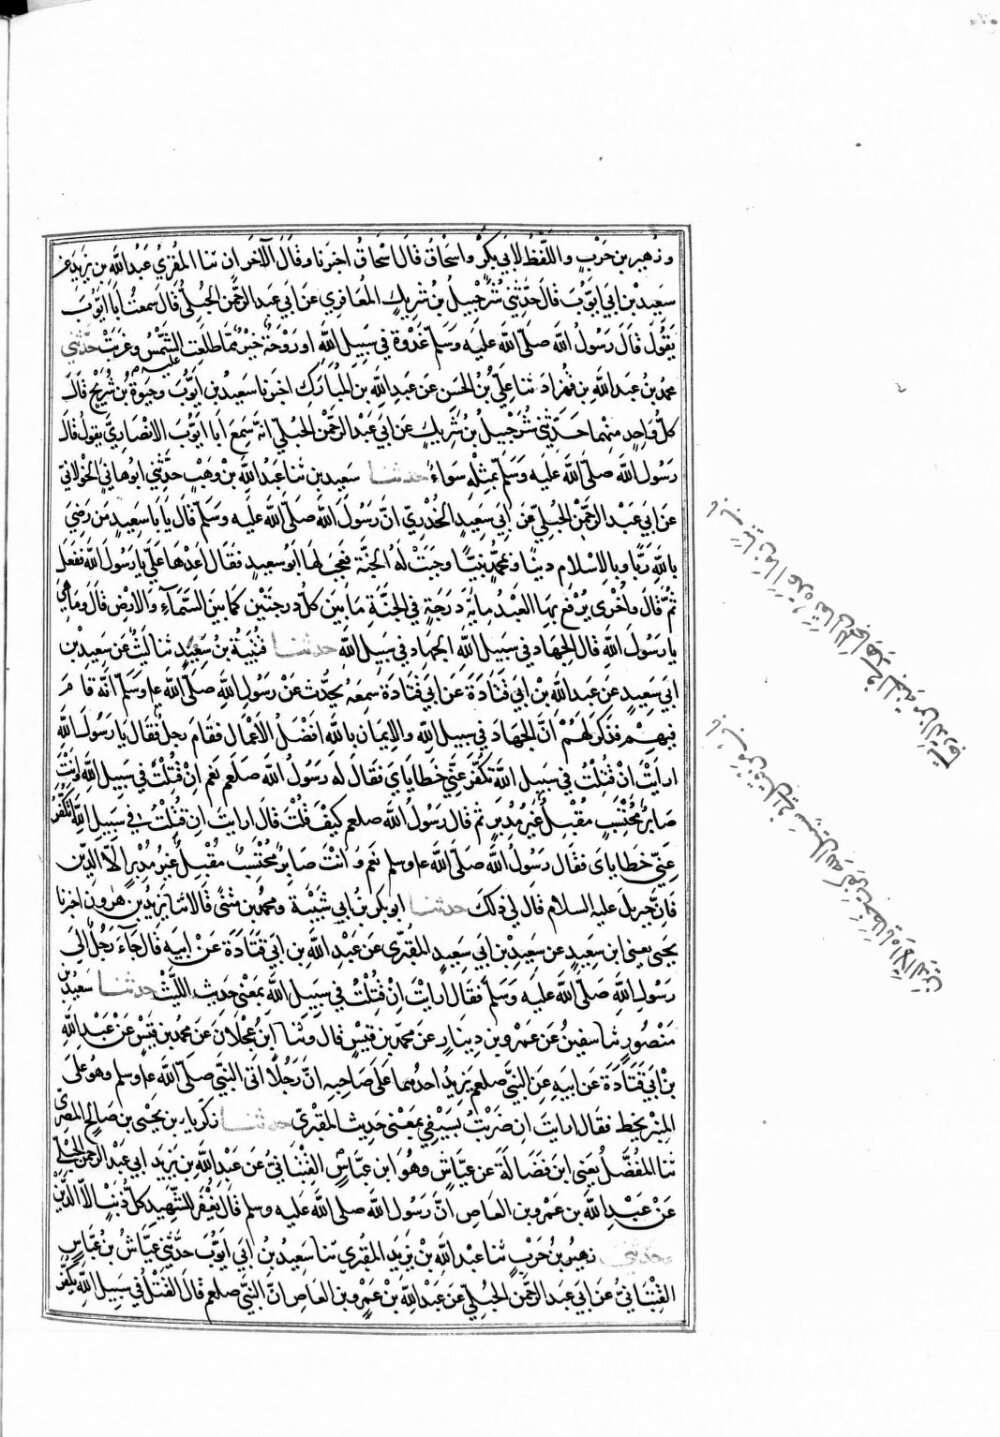 وزهير بن حرب واللفظ لابي بكر واسحاق قال اسحاق اخبرنا وقال الآخران ثنا المقرئ عبد الله بن يزيد عن
سعيد بن ابي ايوب قال حدثني شرحبيل بن شريك المعافري عن ابي عبد الرحمن الحبلي قال سمعت ابا ايوب
يقول قال رسول الله صلى الله عليه وسلم غدوة في سبيل الله او روحة خير مما طلعت عليه الشمس وغربت حدثني
محمد بن عبد الله بن قهزاد ثنا علي بن الحسن عن عبد الله بن المبارك اخبرنا سعيد بن ايوب وحيوة بن شريح قال
كل واحد منهما حدثني شرحبيل بن شريك عن ابي عبد الرحمن الحبلي انه سمع ابا ايوب الانصاري يقول قال
رسول الله صلى الله عليه وسلم بمثله سواء حدثنا سعيد بن ثنا عبد الله بن وهب حدثني ابو هانئ الخولاني
عن ابي عبد الرحمن الحبلي عن ابي سعيد الخدري ان رسول الله صلى الله عليه وسلم قال يا با سعيد من رضي
بالله ربا وبالاسلام دينا وبمحمد نبيا وجبت له الجنة فعجب لها ابو سعيد فقال اعدها علي يا رسول الله ففعل
ثم قال واخرى يرفع بها العبد مائة درجة في الجنة ما بين كل درجتين كما بين السماء والارض قال وما هي
يا رسول الله قال الجهاد في سبيل الله الجهاد في سبيل الله حدثنا قتيبة بن سعيد ثنا ليث عن سعيد بن
ابي سعيد عن عبد الله بن ابي قتادة عن ابي قتادة سمعه يحدث عن رسول الله صلى الله ع وسلم انه قام
فيهم فذكر لهم ان الجهاد في سبيل الله والايمان بالله افضل الاعمال فقام رجل فقال يا رسول الله
ارايت ان قتلت في سبيل الله تكفر عني خطاياي فقال له رسول الله صلعم نعم ان قتلت في سبيل الله وانت
صابر محتسب مقبل غير مدبر ثم قال رسول الله صلعم كيف قلت قال ارايت ان قتلت في سبيل الله اتكفر
عني خطاياى فقال رسول الله صلى الله ع وسلم نعم وانت صابر محتسب مقبل غير مدبر الا الدين
فان جبريل عليه السلام قال لي ذلك حدثنا ابو بكر بن ابي شيبة ومحمد بن مثنى قالا ثنا يزيد بن هرون اخبرنا
يحيى يعني ابن سعيد عن سعيد بن ابي سعيد المقبري عن عبد الله بن ابي قتادة عن ابيه قال جاء رجل الى
رسول الله صلى الله عليه وسلم فقال ارايت ان قتلت في سبيل الله بمعنى حديث الليث حدثنا سعيد بن
منصور ثنا سفين عن عمرو بن دينار عن محمد بن قيس قال وثنا ابن عجلان عن محمد بن قيس عن عبد الله
بن ابي قتادة عن ابيه عن النبي صلعم يزيد احدهما على صاحبه ان رجلا اتى النبي صلى الله ع وسلم وهو على
المنبر يخط فقال ارايت ان ضربت بسيفي بمعنى حديث المقبري حدثنا زكريا بن يحيى بن صالح المصري
ثنا المفضل يعني ابن فضالة عن عياش وهو ابن عباس القتباني عن عبد الله بن يزيد ابي عبد الرحمن الحبلي
عن عبد الله بن عمرو بن العاص ان رسول الله صلى الله عليه وسلم قال يغفر للشهيد كل ذنب الا الدين
وحدثني زهير بن حرب ثنا عبد الله بن يزيد المقرئ ثنا سعيد بن ابي ايوب حدثني عياش بن عباس
القتباني عن ابي عبد الرحمن الحبلي عن عبد الله بن عمرو بن العاص ان النبي صلعم قال القتل في سبيل الله يكفر